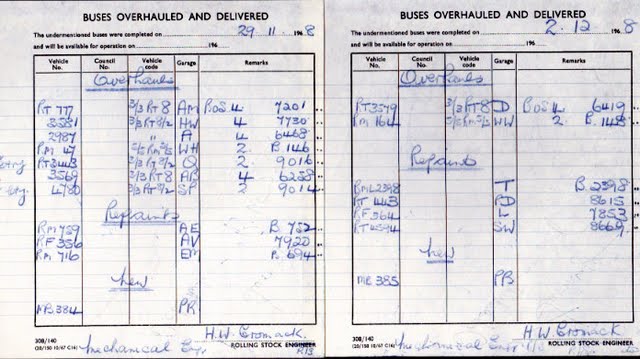 BUSES OVERHAULED AND DELIVERED
The undermentioned buses were completed on 29.11. 1968
and will be available for operation on 196
Vehicle No. Council No. Vehicle code Garage Remarks
Overhauls
RT 777 3/3 RT8 AM BOS 4 7201
3551 3/3 RT8/2 HW 4 7730
2987 " A 4 6468
RM 47 5/5 RM5/5 WH 2. B.146
RT3443 3/3 RT8/2 Q 2. 9016
3569 3/3 RT8 AR 4 6258
4780 3/3 RT8/2 SP 2 9014
Repaints
RM 759 AE B. 752
RF 356 AV 7920
RM 716 EM B. 694
New
MB 384 PR
H.W. Cromack.
308/140 ROLLING STOCK ENGINEER
Mechanical Eng.
BUSES OVERHAULED AND DELIVERED
The undermentioned buses were completed on 2.12 1968
and will be available for operation on 196
Vehicle No. Council No. Vehicle code Garage Remarks
Overhauls
RT3579 3/3 RT8 D BOS 4 6419
RM 164 5/5 RM5/5 WW 2. B.148
Repaints
RML2398 T B.2398
RT 443 RD 8615
RF 364 L 7853
RT4594 SW 8669
New
MB 385 PB
H.W Cromack
308/140 ROLLING STOCK ENGINEER